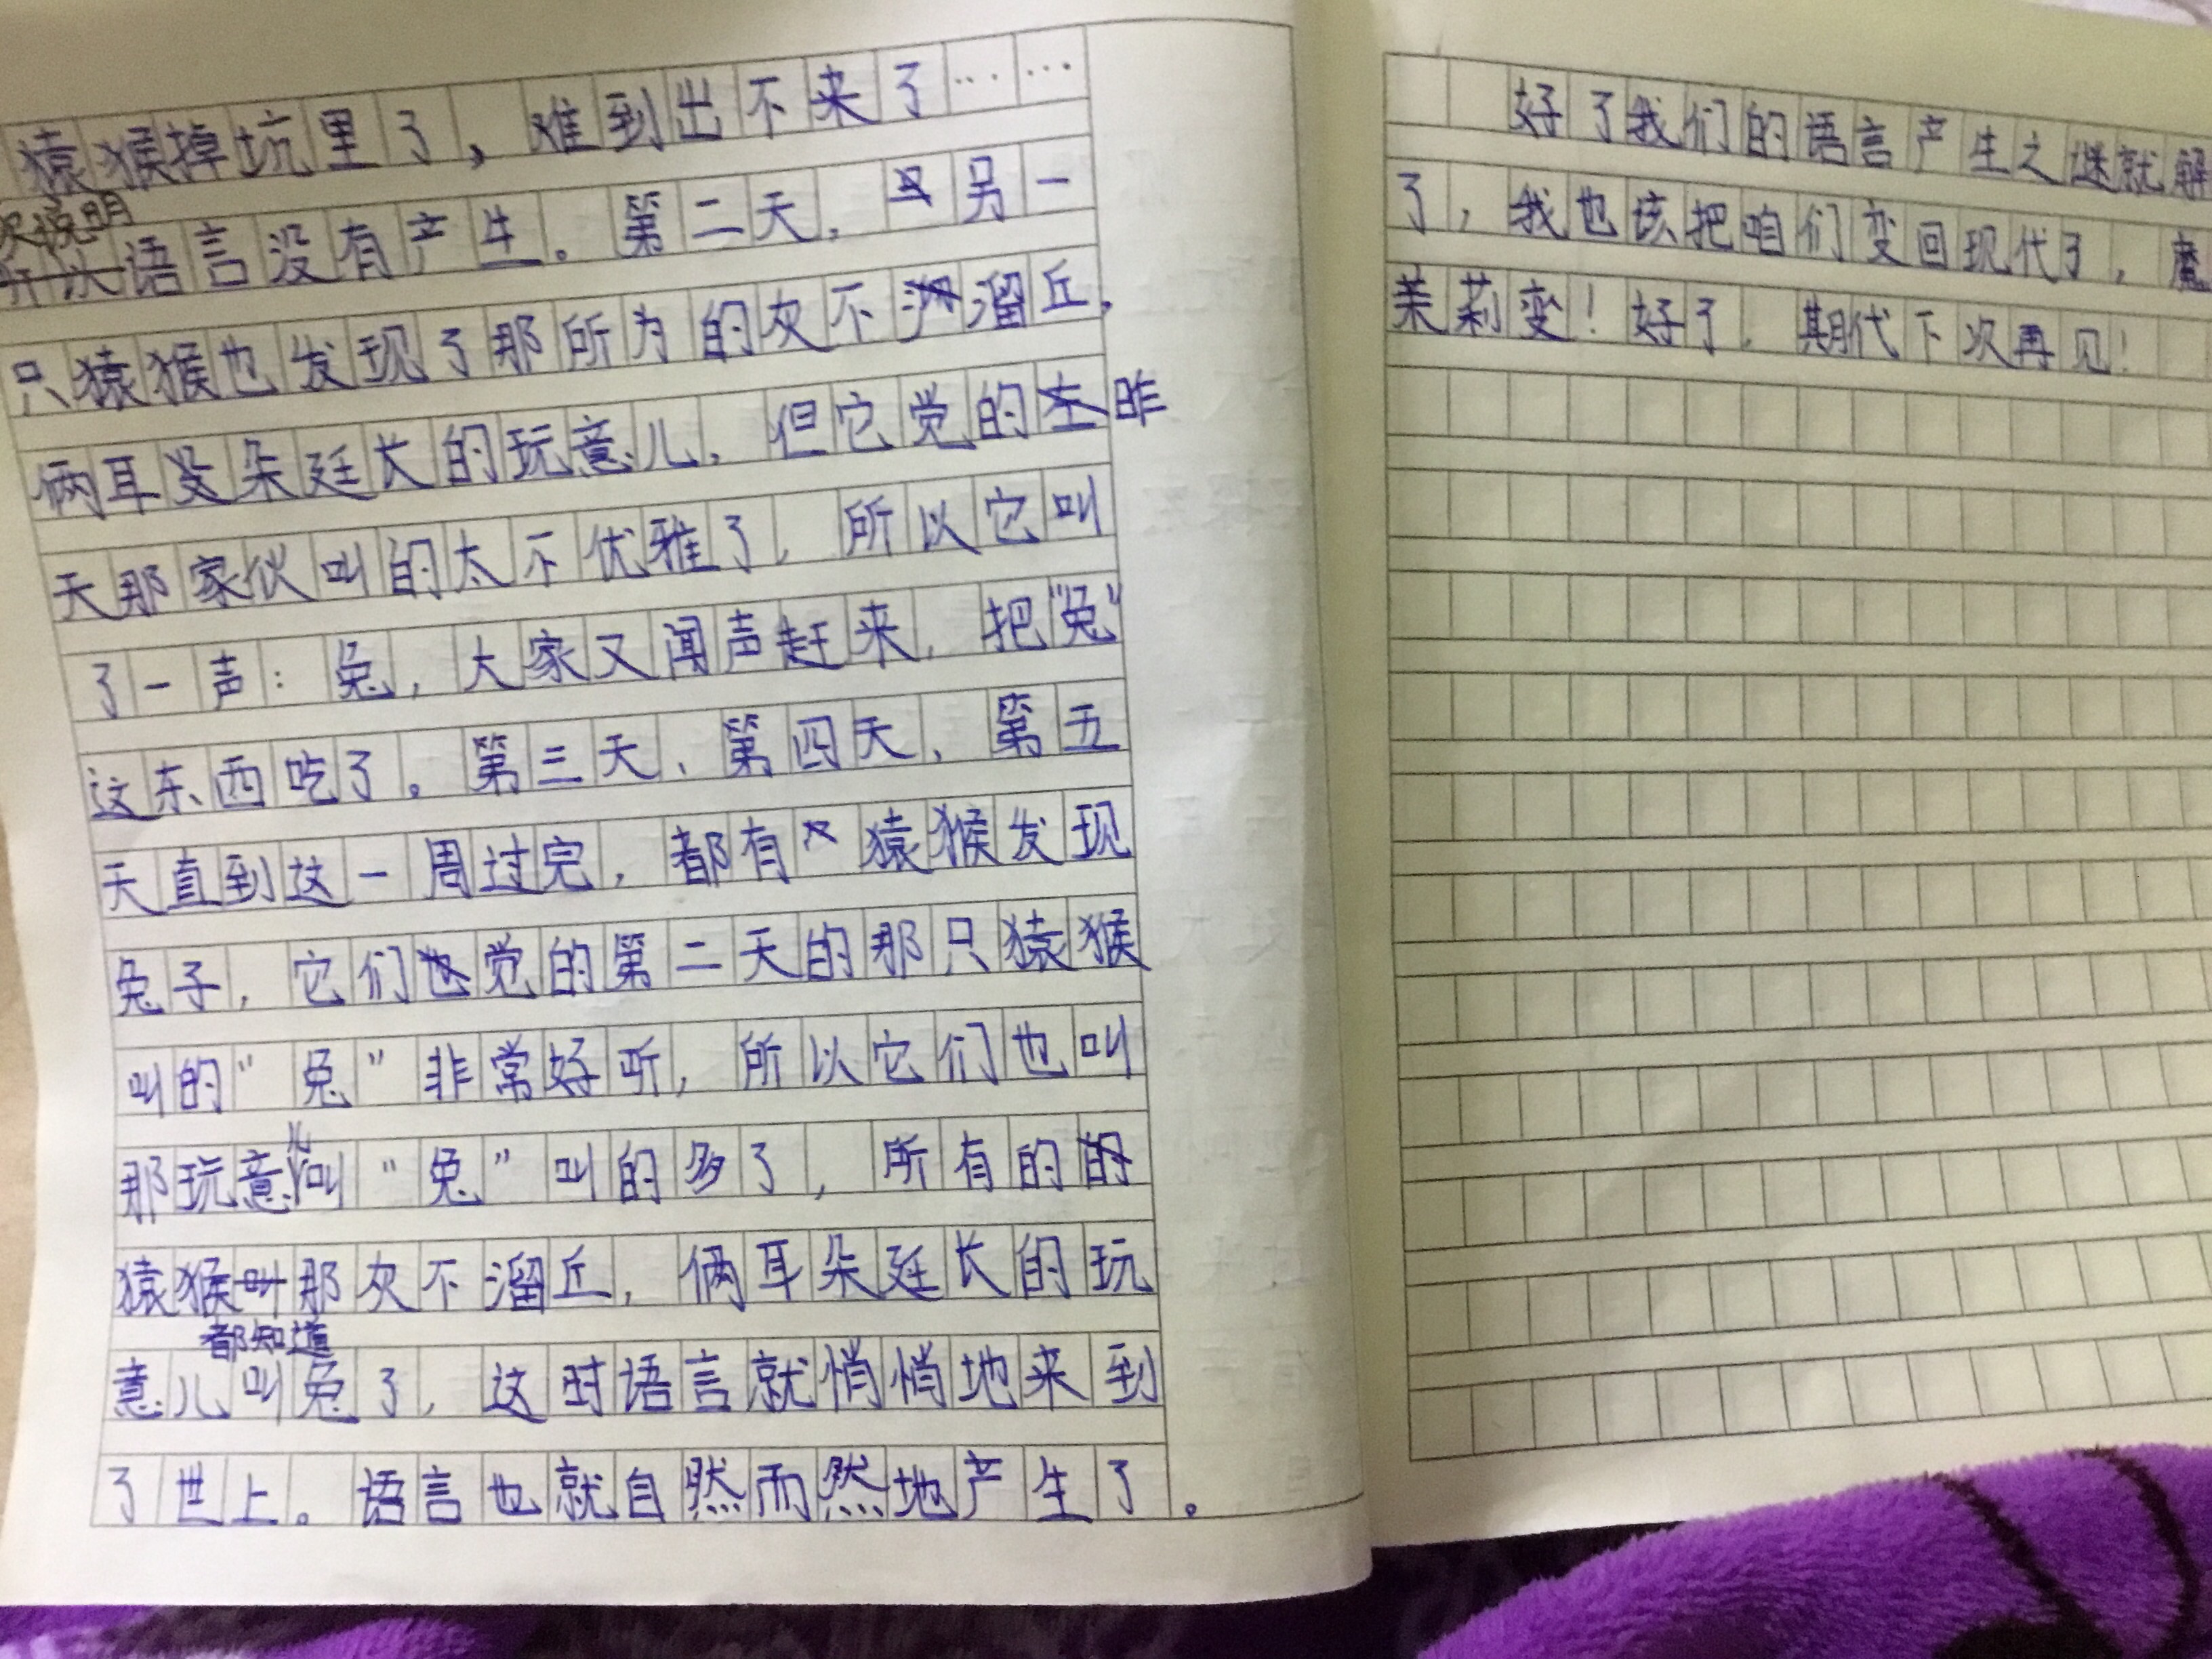 猿猴掉坑里了，难到出不来了……
说明
语言没有产生。第二天，另一
只猿猴也发现了那所为的灰不溜丘，
俩耳朵廷长的玩意儿，但它觉的昨
天那家伙叫的太不优雅了，所以它叫
了一声：兔，大家又闻声赶来，把"兔"
这东西吃了。第三天、第四天、第五
天直到这一周过完，都有猿猴发现
兔子，它们觉的第二天的那只猿猴
叫的"兔"非常好听，所以它们也叫
那玩意儿叫"兔"叫的多了，所有的
猿猴那灰不溜丘，俩耳朵廷长的玩
都知道
意儿叫兔了，这时语言就悄悄地来到
了世上。语言也就自然而然地产生了。
好了我们的语言产生之谜就解
了，我也该把咱们变回现代了，魔
茉莉变！好了，期代下次再见！